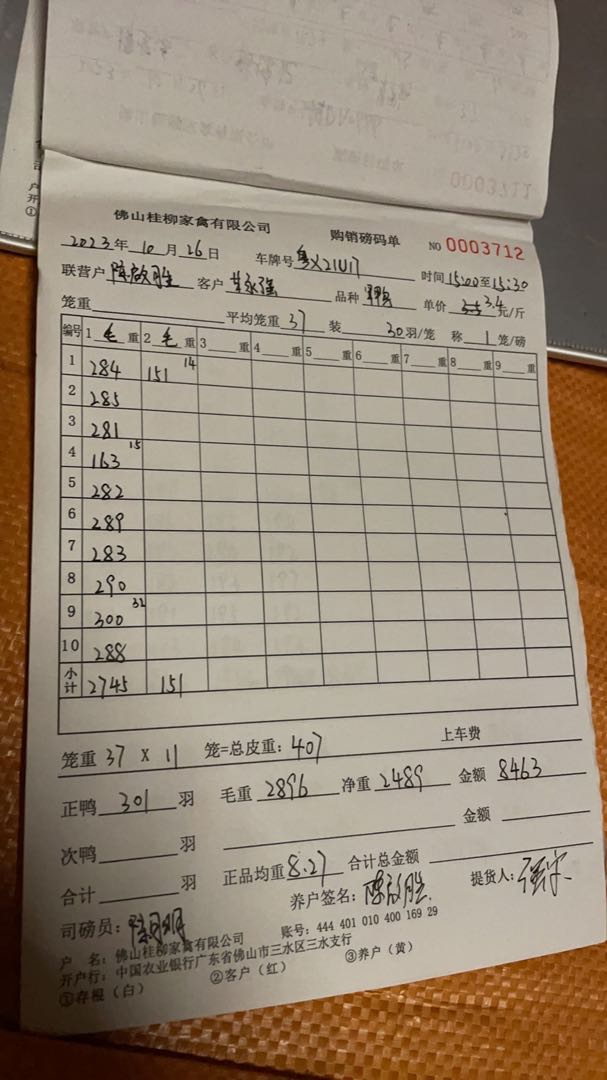 0003711
佛山桂柳家禽有限公司 购销磅码单 NO 0003712
2023年10月26日 车牌号 粤X21U17 时间15:00至15:30
联营户 陈启胜 客户 甘永强 品种 单价 3.4元/斤
笼重 平均笼重 37 装 30羽/笼 称 1 笼/磅
编号 1毛重 2毛重 3重 4重 5重 6重 7重 8重 9重
1 284 151 14
2 285
3 281
4 163 15
5 282
6 289
7 283
8 290
9 300 32
10 288
小计 2745 151
笼重 37 X 11 笼=总皮重:407 上车费
正鸭 301 羽 毛重 2896 净重 2489 金额 8463
次鸭 羽 金额
合计 羽 正品均重 8.27 合计总金额
养户签名: 陈启胜 提货人:
司磅员:
户 名:佛山桂柳家禽有限公司 账号:444 401 010 400 169 29
开户行:中国农业银行广东省佛山市三水区三水支行
①存根(白) ②客户(红) ③养户(黄)